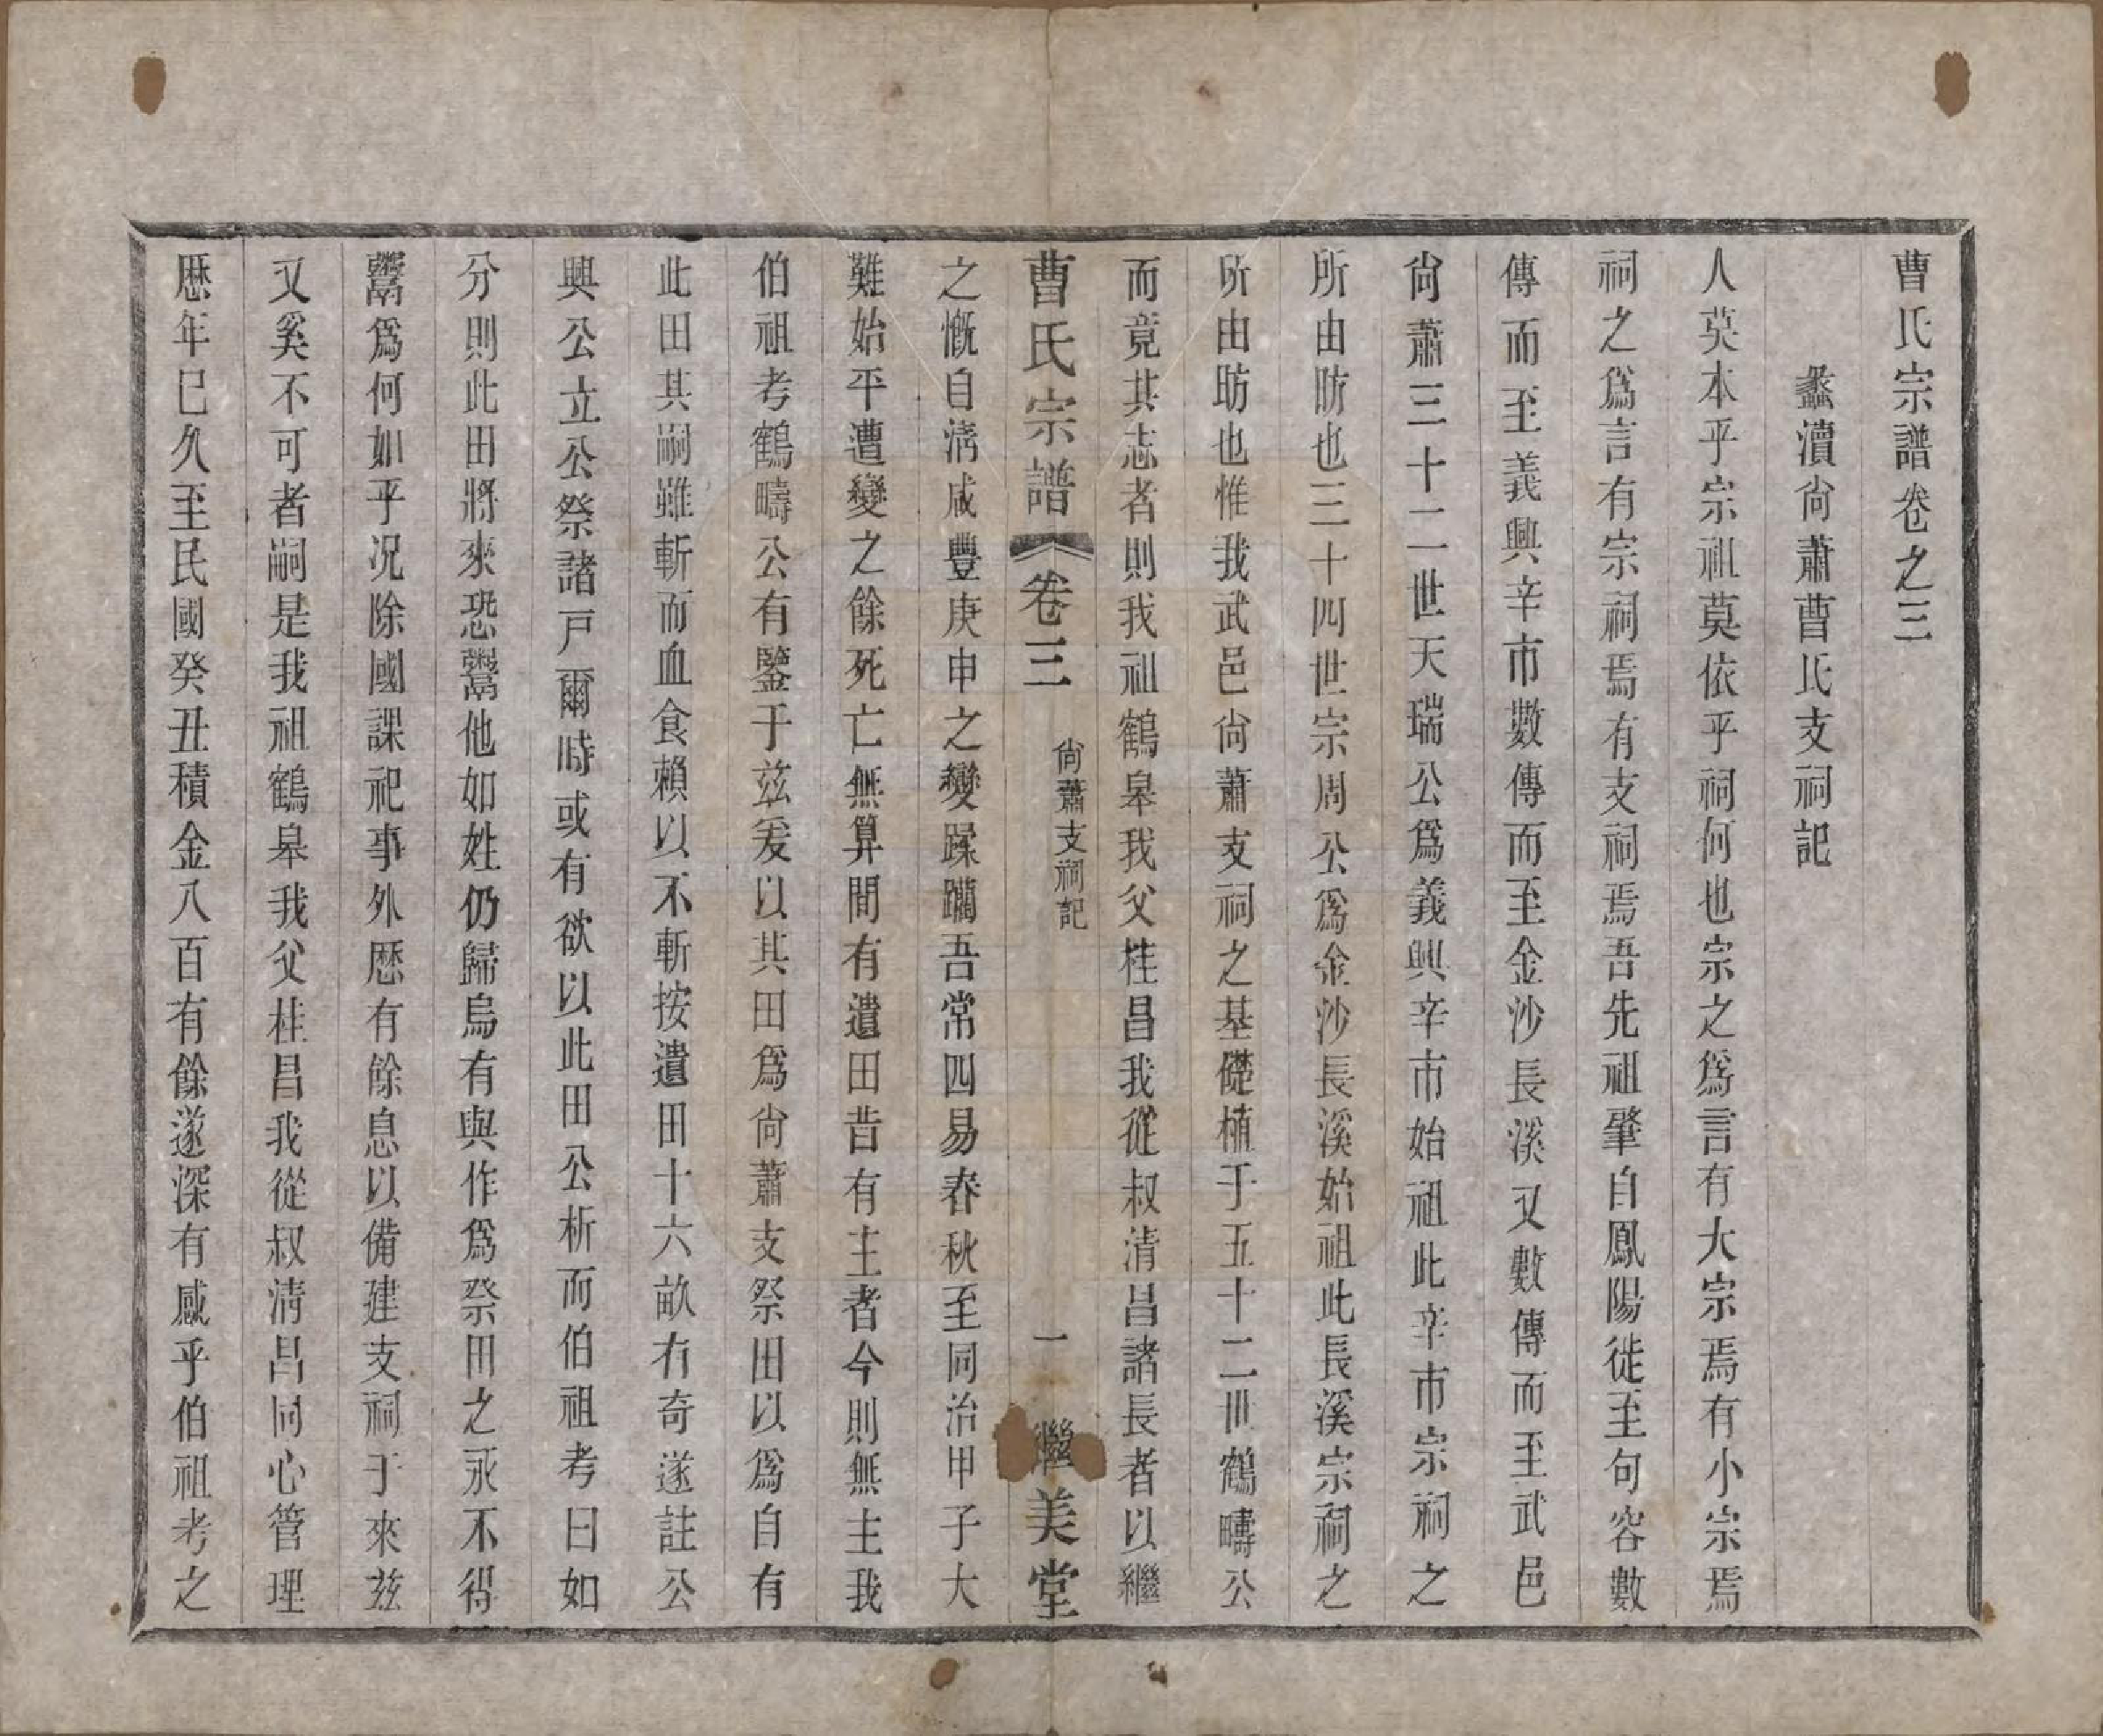 曹氏宗譜卷之三
蠡瀆尙蕭曹氏支祠記
人莫本乎宗祖莫依乎祠何也宗之爲言有大宗焉有小宗焉
祠之爲言有宗祠焉有支祠焉吾先祖肇自鳳陽徙至句容數
傳而至義興辛市數傳而至金沙長溪又數傳而至武邑
尙蕭三十二世天瑞公爲義興辛市始祖此辛市宗祠之
所由昉也三十四世宗周公爲金沙長溪始祖此長溪宗祠之
所由昉也惟我武邑尙蕭支祠之基礎植于五十二世鶴疇公
而竟其志者則我祖鶴皋我父桂昌我從叔清昌諸長者以繼
曹氏宗譜 卷三 尙蕭支祠記 一 繼美堂
之慨自淸咸豐庚申之變蹂躪吾常四易春秋至同治甲子大
難始平遭變之餘死亡無算間有遺田昔有主者今則無主我
伯祖考鶴疇公有鑒于兹爰以其田爲尙蕭支祭田以爲自有
此田其嗣雖斬而血食賴以不斬按遺田十六畝有奇遂註公
興公立公祭諸戸爾時或有欲以此田公析而伯祖考曰如
分則此田將來恐鬻他如姓仍歸烏有與作爲祭田之永不得
鬻爲何如乎况除國課祀事外歷有餘息以備建支祠于來兹
又奚不可者嗣是我祖鶴皋我父桂昌我從叔淸昌同心管理
歷年已久至民國癸丑積金八百有餘遂深有感乎伯祖考之